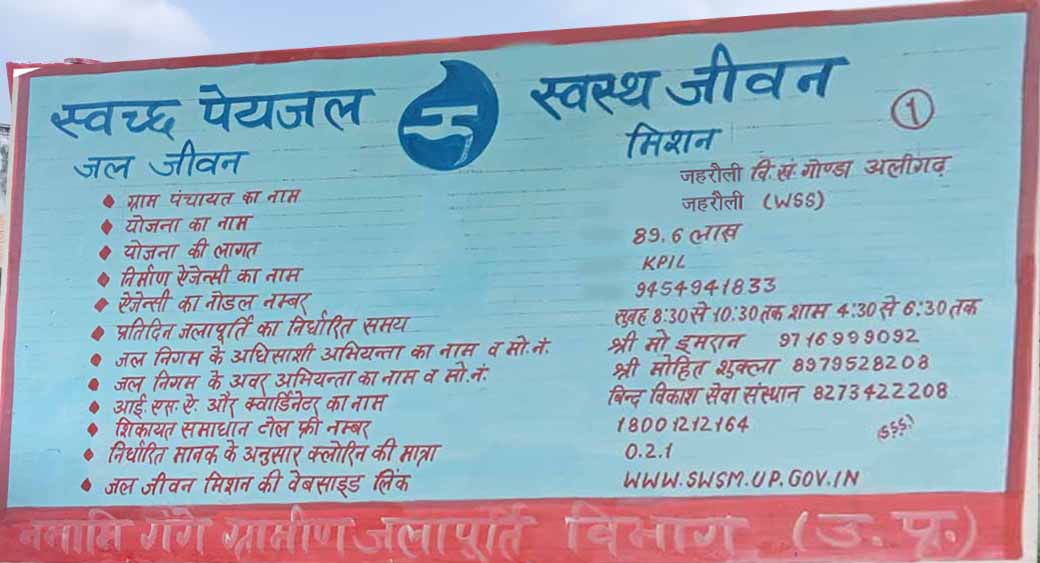 स्वच्छ पेयजल स्वस्थ जीवन
जल जीवन मिशन
1
ग्राम पंचायत का नाम जहरौली वि.खं. गोण्डा अलीगढ़
योजना का नाम जहरौली (WSS)
योजना की लागत 89.6 लाख
निर्माण ऐजेन्सी का नाम KPIL
ऐजेन्सी का नोडल नम्बर 9454941833
प्रतिदिन जलापूर्ति का निर्धारित समय सुबह 8:30 से 10:30 तक शाम 4:30 से 6:30 तक
जल निगम के अधिसाशी अभियन्ता का नाम व मो.नं. श्री मो इमरान 9716999092
जल निगम के अवर अभियन्ता का नाम व मो.नं. श्री मोहित शुक्ला 8979528208
आई.एस.ऐ. और क्वार्डिनेटर का नाम बिन्द विकाश सेवा संस्थान 8273422208
शिकायत समाधान टोल फ्री नम्बर 18001212164
निर्धारित मानक के अनुसार क्लोरिन की मात्रा 0.2.1
जल जीवन मिशन की वेबसाइड लिंक WWW.SWSM.UP.GOV.IN
नमामि गंगे ग्रामीण जलापूर्ति विभाग (उ.प्र.)